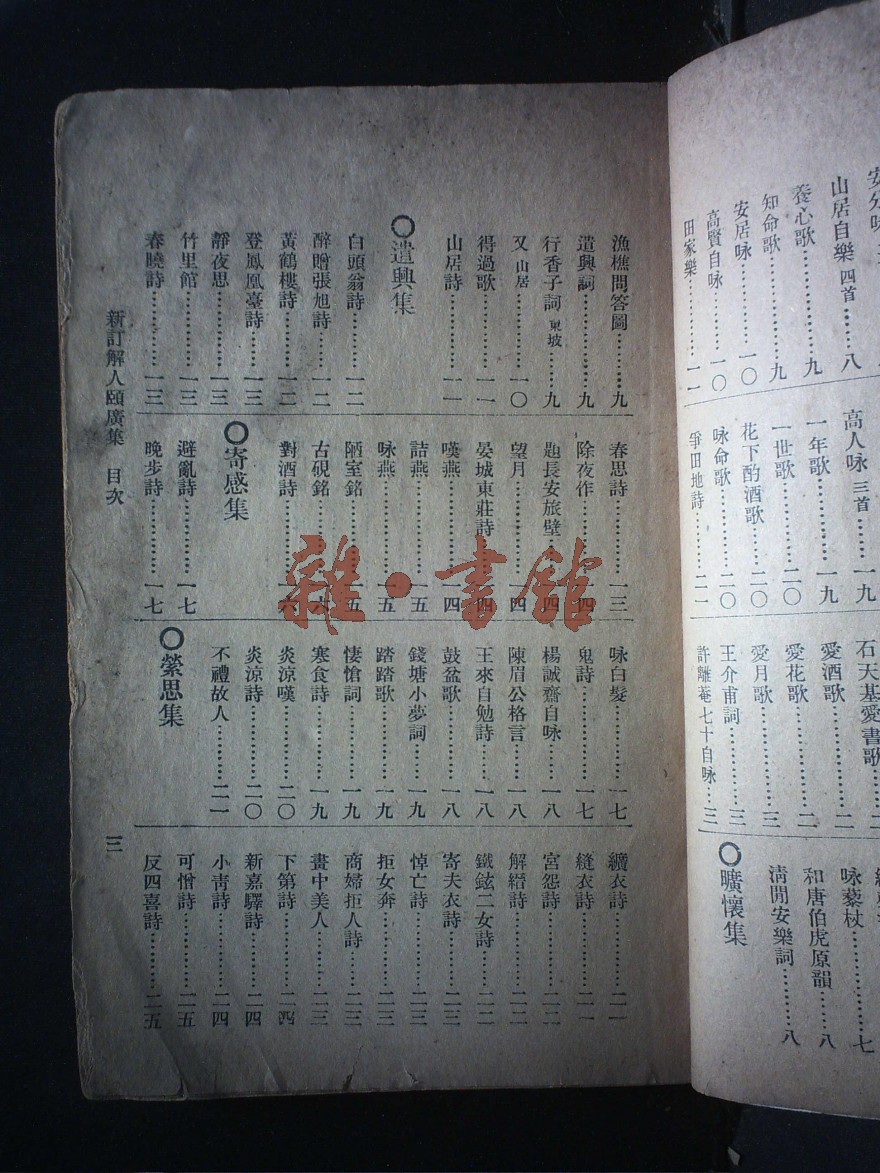 山居自樂 四首……八
養心歌……九
知命歌……九
安居咏……一〇
高賢自咏……一〇
田家樂……一一
高人咏 三首……一九
一年歌……一九
一世歌……二〇
花下酌酒歌……二〇
咏命歌……二〇
爭田地詩……二一
石天基愛書歌……二
愛酒歌……二
愛花歌……二
愛月歌……三
王介甫詞……三
許離菴七十自咏……三
咏藜杖……七
和唐伯虎原韻……八
清閒安樂詞……八
〇曠懷集
漁樵問答圖……九
遣興詞……九
行香子詞 東坡……九
又 山居……一〇
得過歌……一一
山居詩……一一
〇遣興集
白頭翁詩……一二
醉贈張旭詩……一二
黃鶴樓詩……一二
登鳳凰臺詩……一三
靜夜思……一三
竹里館……一三
春曉詩……一三
春思詩……一三
除夜作……一四
題長安旅壁……一四
望月……一四
晏城東莊詩……一四
嘆燕……一四
詰燕……一五
咏燕……一五
陋室銘……一五
古硯銘……一六
對酒詩……一六
〇寄感集
避亂詩……一七
晚步詩……一七
咏白髮……一七
鬼詩……一七
楊誠齋自咏……一八
陳眉公格言……一八
王來自勉詩……一八
鼓盆歌……一八
錢塘小夢詞……一九
踏踏歌……一九
悽愴詞……一九
寒食詩……一九
炎涼嘆……二〇
炎涼詩……二〇
不禮故人……二一
〇縈思集
纊衣詩……二一
縫衣詩……二一
宮怨詩……二二
解縉詩……二二
鐵鉉二女詩……二二
寄夫衣詩……二三
悼亡詩……二三
拒女奔……二三
商婦拒人詩……二三
畫中美人……二三
下第詩……二四
新嘉驛詩……二四
小靑詩……二四
可憎詩……二五
反四喜詩……二五
新訂解人頤廣集 目次
三
雜·書館